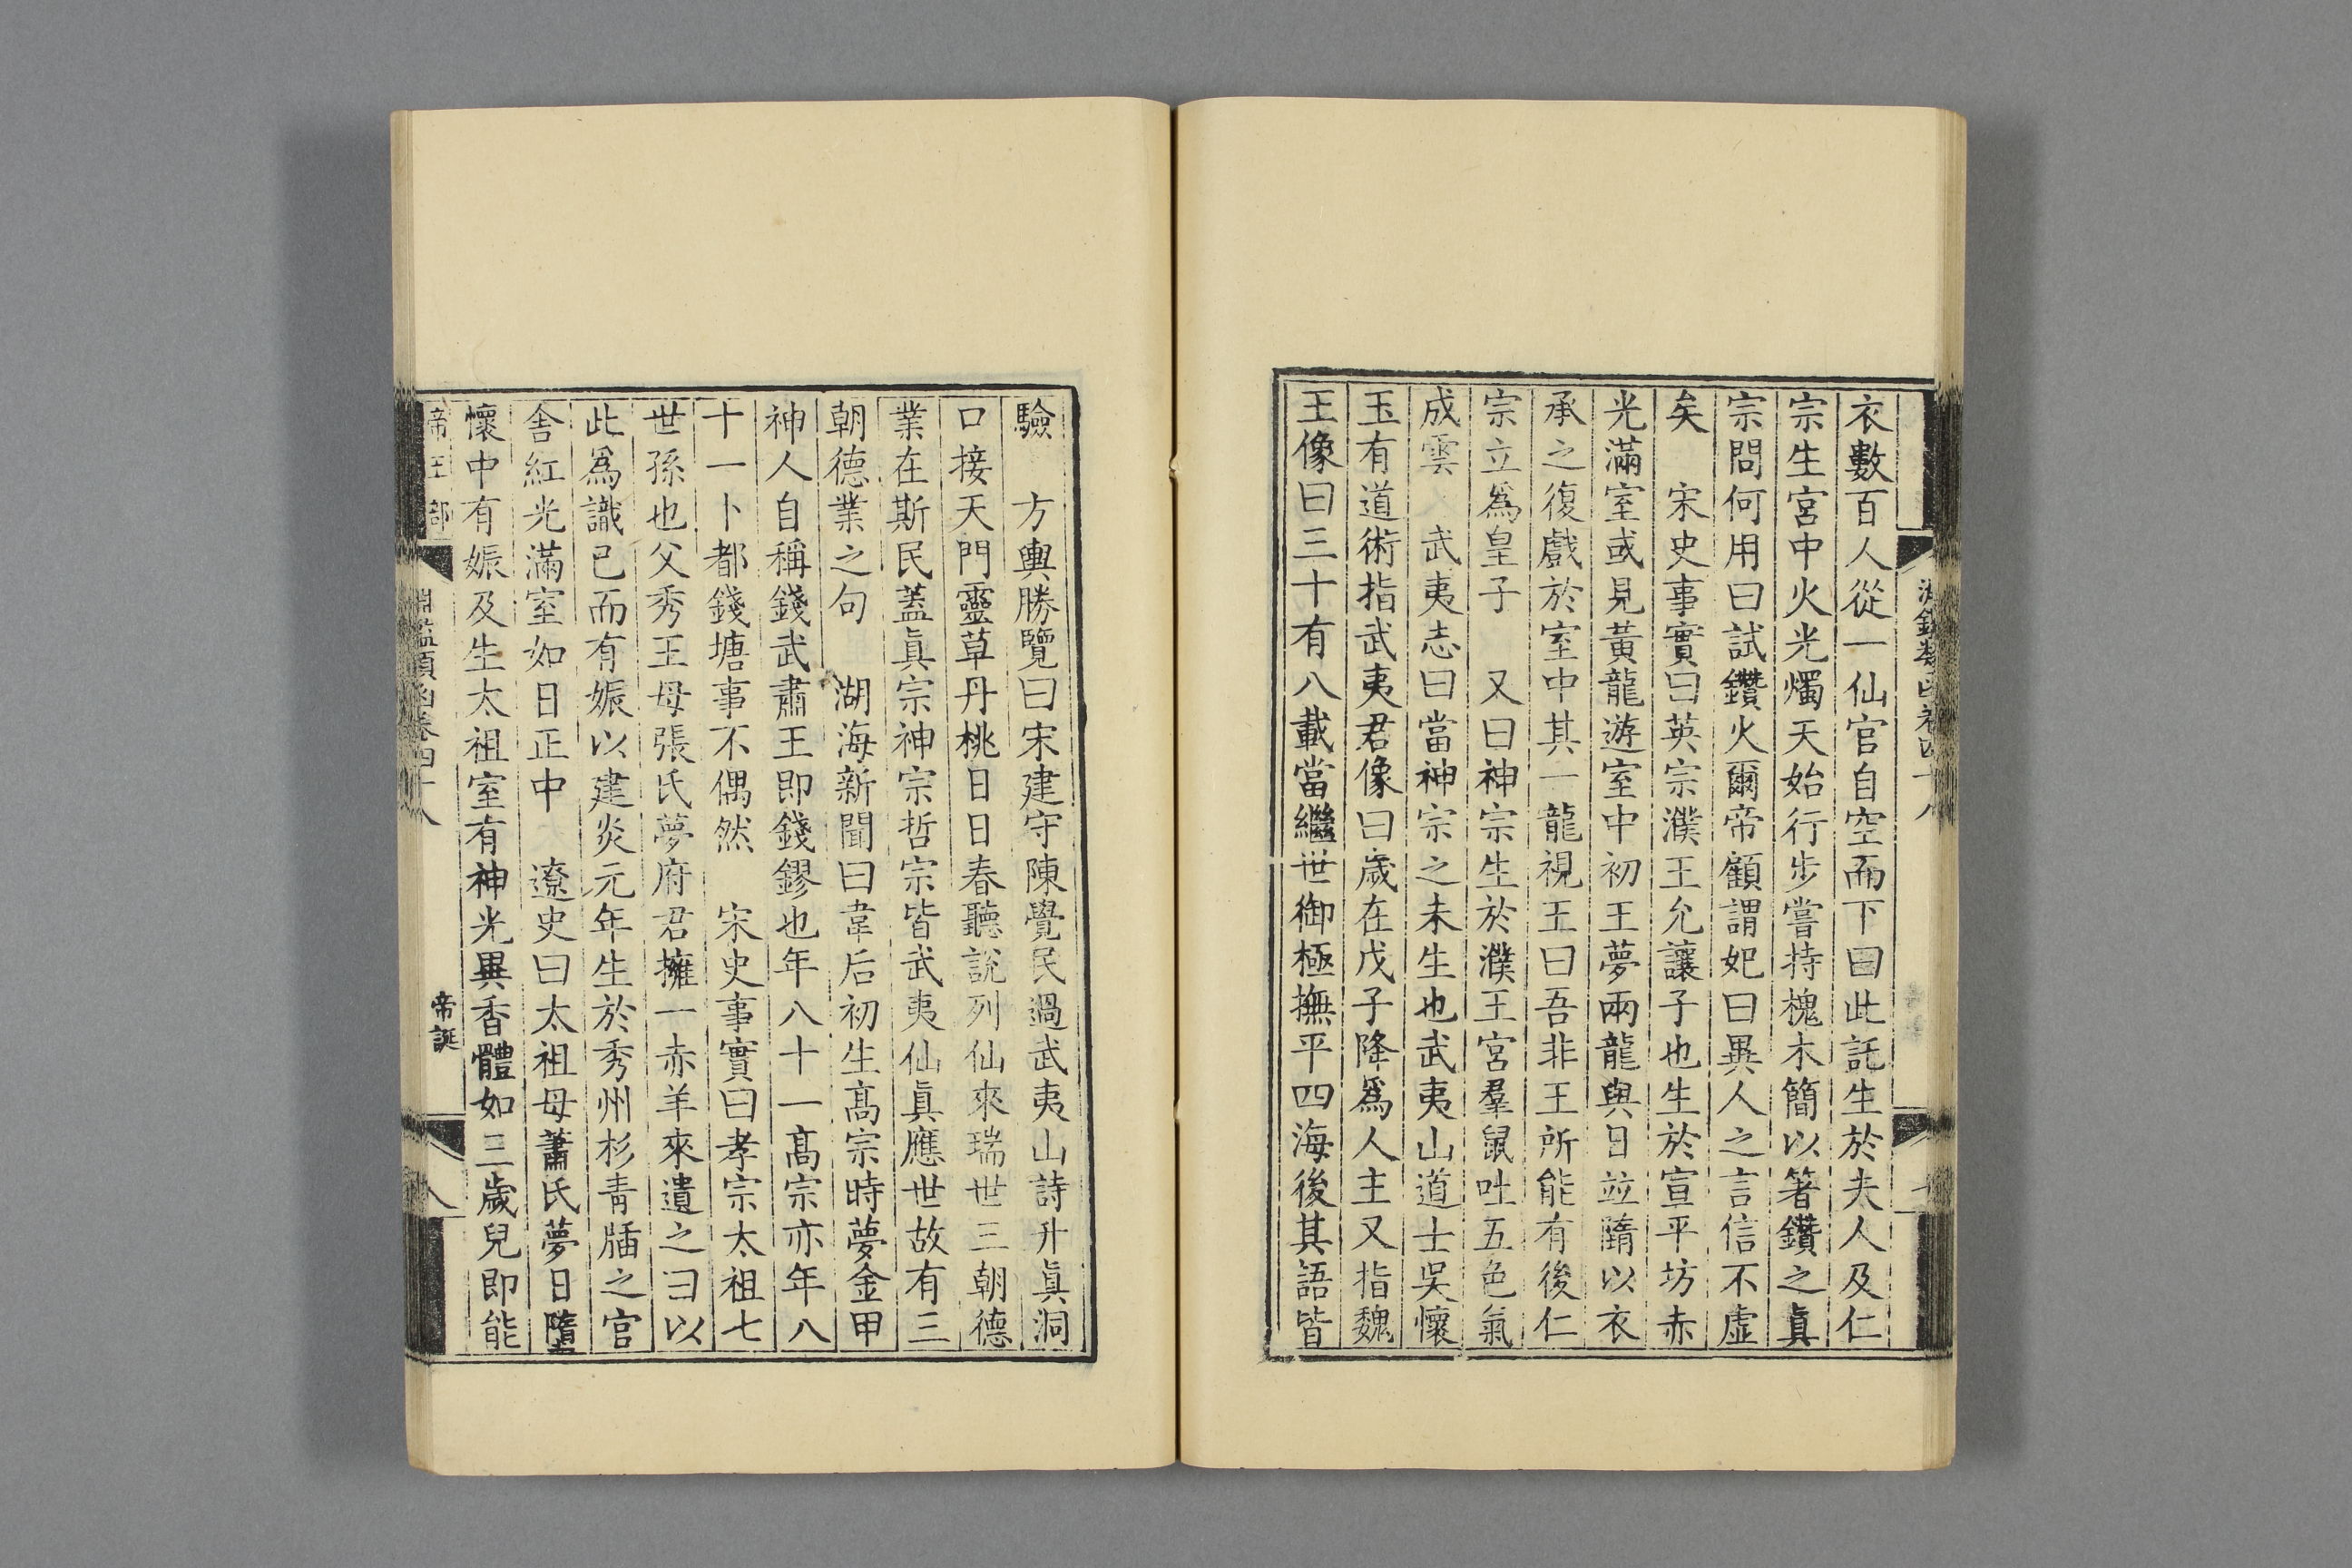 衣數百人從一仙官自空而下曰此託生於夫人及仁
宗生宮中火光燭天始行步嘗持槐木簡以箸鑽之眞
宗問何用曰試鑽火爾帝顧謂妃曰異人之言信不虛
矣　宋史事實曰英宗濮王允讓子也生於宣平坊赤
光滿室或見黃龍遊室中初王夢兩龍與日竝隋以衣
承之復戲於室中其一龍視王曰吾非王所能有後仁
宗立爲皇子　又曰神宗生於濮王宮羣鼠吐五色氣
成雲　武夷志曰當神宗之未生也武夷山道士吳懷
玉有道術指武夷君像曰歲在戊子降爲人主又指魏
王像曰三十有八載當繼世御極撫平四海後其語皆
驗　方輿勝覽曰宋建守陳覺民過武夷山詩升眞洞
口接天門靈草丹桃日日春聽說列仙來瑞世三朝德
業在斯民蓋眞宗神宗哲宗皆武夷仙眞應世故有三
朝德業之句　湖海新聞曰韋后初生高宗時夢金甲
神人自稱錢武肅王即錢鏐也年八十一高宗亦年八
十一卜都錢塘事不偶然　宋史事實曰孝宗太祖七
世孫也父秀王母張氏夢府君擁一赤羊來遺之曰以
此爲識已而有娠以建炎元年生於秀州杉青牐之官
舍紅光滿室如日正中　遼史曰太祖母蕭氏夢日墮
懷中有娠及生太祖室有神光異香體如三歲兒即能
帝王部　淵鑑類函卷四十八　帝誕　八